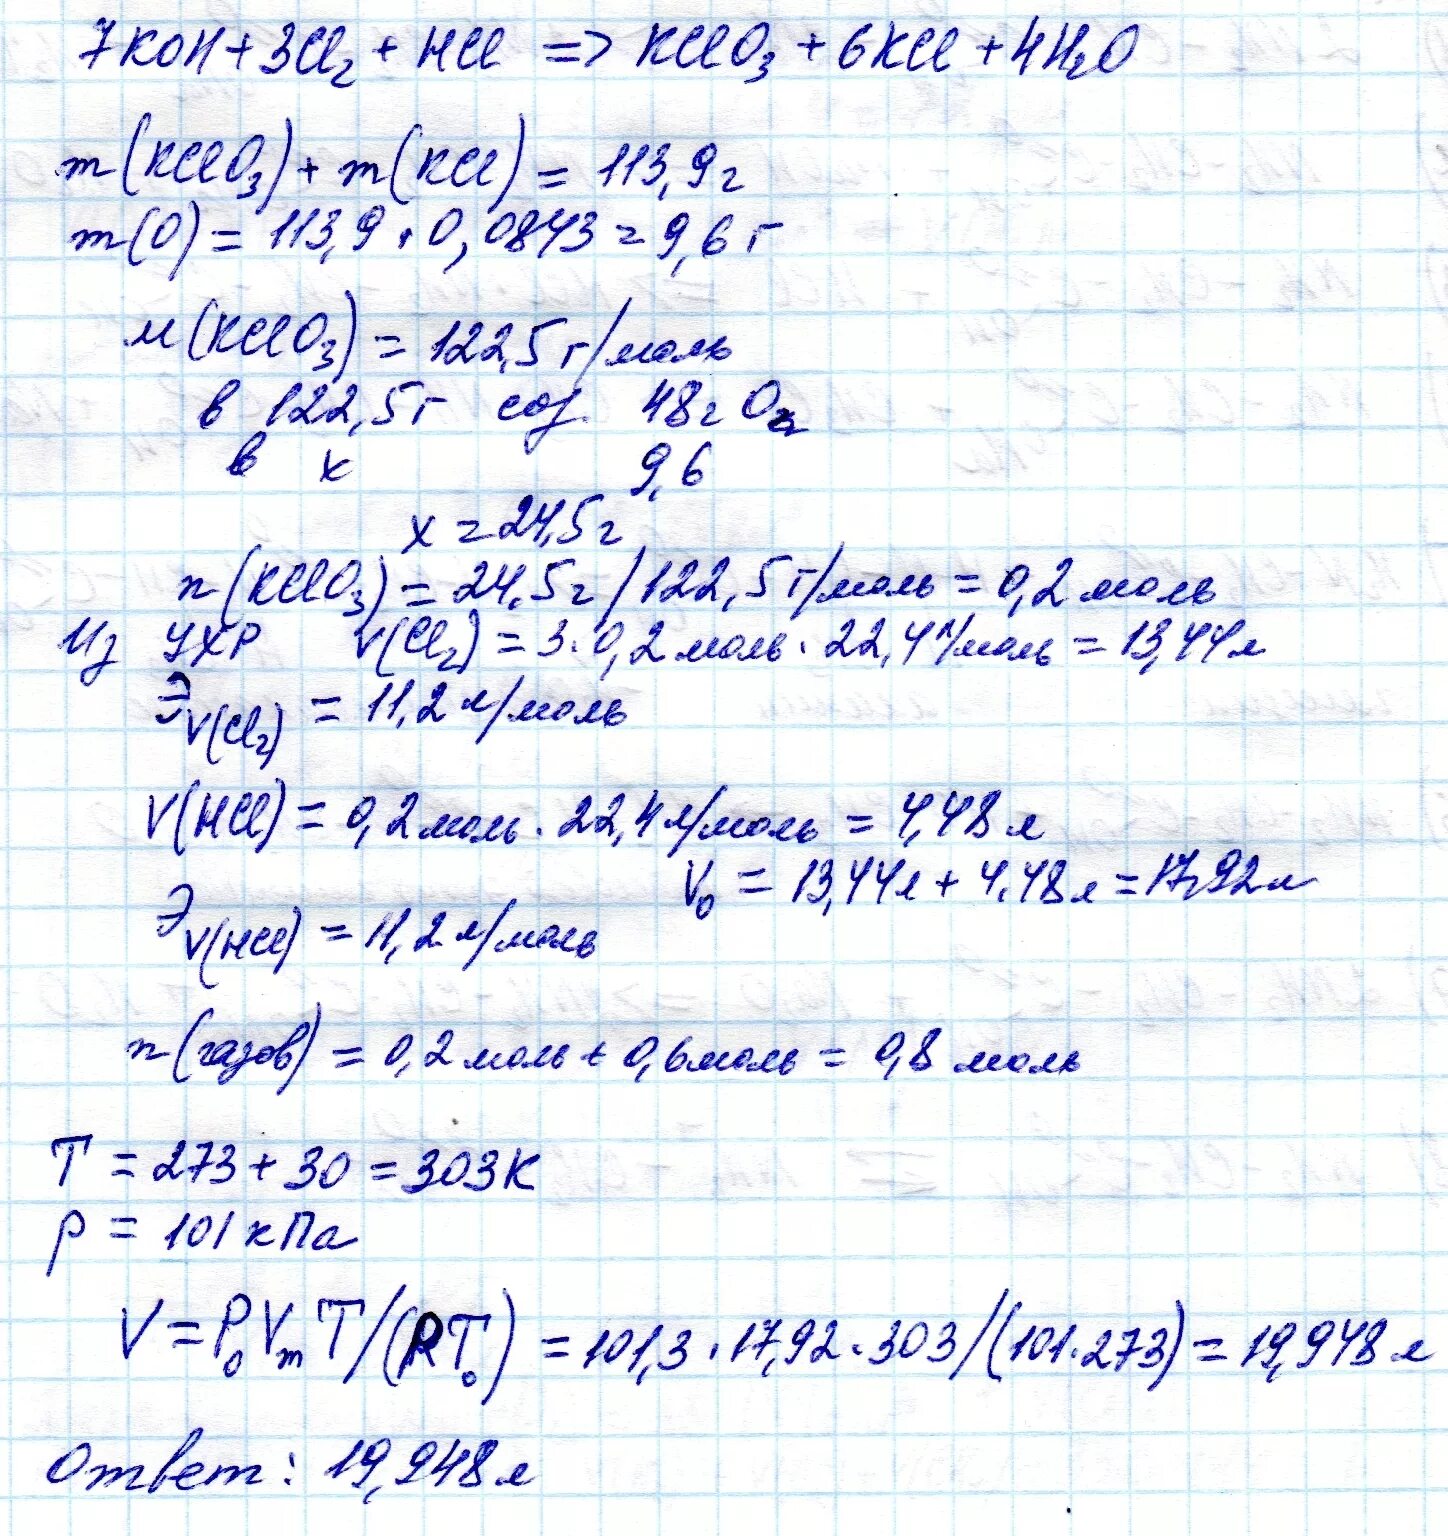 7KOH + 3Cl₂ + HCl => KClO₃ + 6KCl + 4H₂O
m(KClO₃) + m(KCl) = 113,9г
m(O) = 113,9 · 0,0843 = 9,6 г
M(KClO₃) = 122,5 г/моль
в 122,5 г сод. 48г O₂
в x 9,6
x = 24,5г
n(KClO₃) = 24,5г/122,5 г/моль = 0,2 моль
Из УХР V(Cl₂) = 3·0,2 моль·22,4 л/моль = 13,44л
Э_V(Cl₂) = 11,2 л/моль
V(HCl) = 0,2 моль·22,4 л/моль = 4,48 л
V₀ = 13,44л + 4,48л = 17,92л
Э_V(HCl) = 11,2 л/моль
n(газов) = 0,2 моль + 0,6 моль = 0,8 моль
T = 273 + 30 = 303K
p = 101 кПа
V = P₀VₘT/(PT₀) = 101,3·17,92·303/(101·273) = 19,948 л
Ответ: 19,948 л